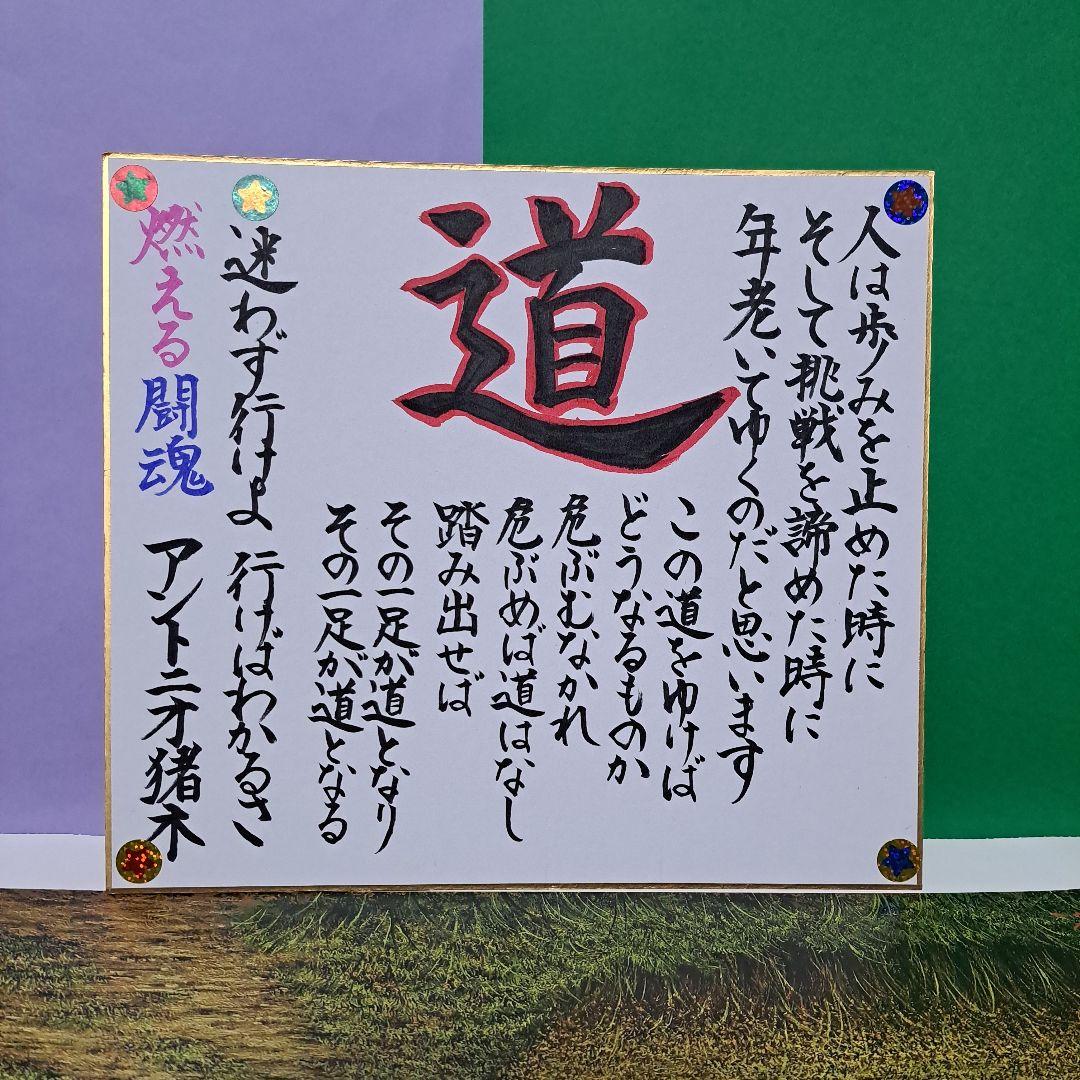 人は歩みを止めた時に
そして挑戦を諦めた時に
年老いてゆくのだと思います
道
この道をゆけば
どうなるものか
危ぶむなかれ
危ぶめば道はなし
踏み出せば
その一足が道となり
その一足が道となる
迷わず行けよ 行けばわかるさ
燃える闘魂 アントニオ猪木